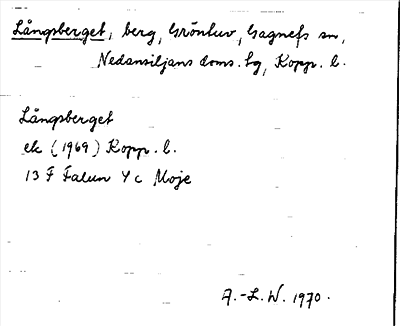 Långsberget, berg, Gröntuv, Gagnefs sn,
Nedansiljans doms. tg, Kopp. l.
Långsberget
ek (1969) Kopp. l.
13 F Falun 4 c Moje
A.-L. W. 1970.